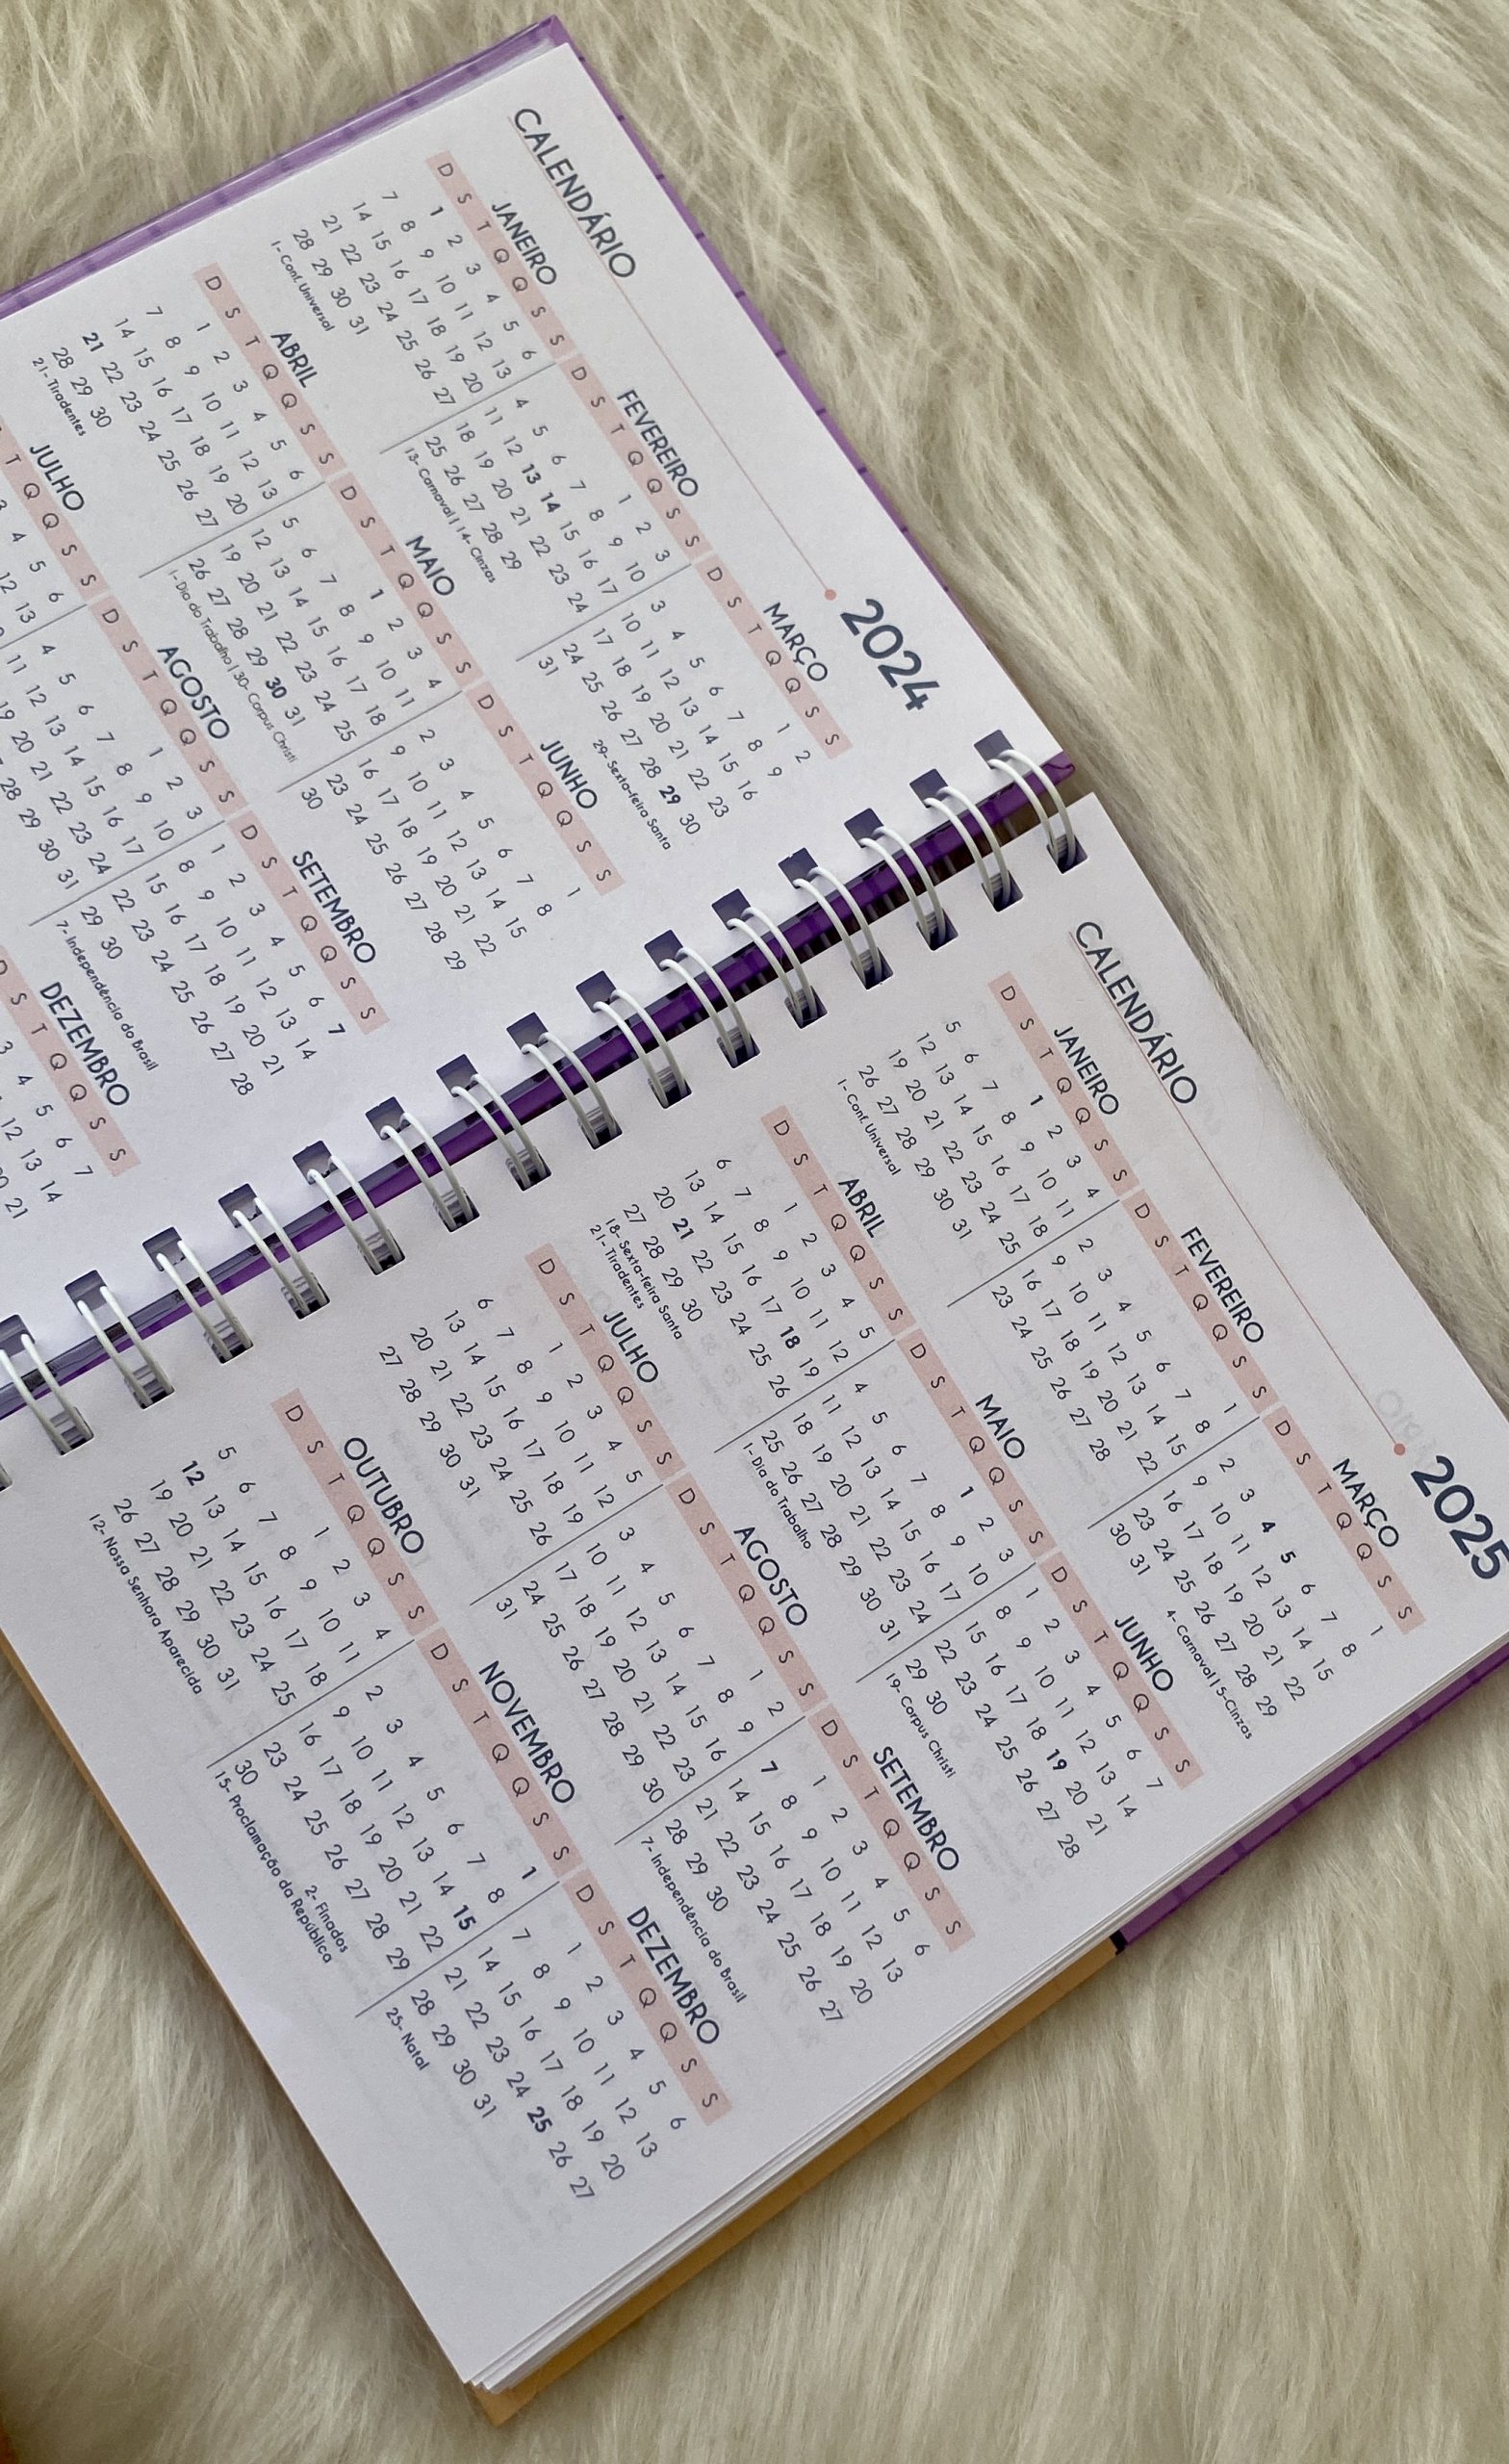 CALENDÁRIO 2024
JANEIRO
D S T Q Q S S
1 2 3 4 5 6
7 8 9 10 11 12 13
14 15 16 17 18 19 20
21 22 23 24 25 26 27
28 29 30 31
1- Conf. Universal
FEVEREIRO
D S T Q Q S S
1 2 3
4 5 6 7 8 9 10
11 12 13 14 15 16 17
18 19 20 21 22 23 24
25 26 27 28 29
13- Carnaval | 14- Cinzas
MARÇO
D S T Q Q S S
1 2
3 4 5 6 7 8 9
10 11 12 13 14 15 16
17 18 19 20 21 22 23
24 25 26 27 28 29 30
31
29- Sexta-feira Santa
ABRIL
D S T Q Q S S
1 2 3 4 5 6
7 8 9 10 11 12 13
14 15 16 17 18 19 20
21 22 23 24 25 26 27
28 29 30
21- Tiradentes
MAIO
D S T Q Q S S
1 2 3 4
5 6 7 8 9 10 11
12 13 14 15 16 17 18
19 20 21 22 23 24 25
26 27 28 29 30 31
1- Dia do Trabalho | 30- Corpus Christi
JUNHO
D S T Q Q S S
1
2 3 4 5 6 7 8
9 10 11 12 13 14 15
16 17 18 19 20 21 22
23 24 25 26 27 28 29
30
JULHO
T Q Q S S
3 4 5 6
12 13
AGOSTO
D S T Q Q S S
1 2 3
4 5 6 7 8 9 10
11 12 13 14 15 16 17
19 20 21 22 23 24
28 29 30 31
SETEMBRO
D S T Q Q S S
1 2 3 4 5 6 7
8 9 10 11 12 13 14
15 16 17 18 19 20 21
22 23 24 25 26 27 28
29 30
7- Independência do Brasil
DEZEMBRO
D S T Q Q S S
3 4 5 6 7
12 13 14
20 21
CALENDÁRIO 2025
JANEIRO
D S T Q Q S S
1 2 3 4
5 6 7 8 9 10 11
12 13 14 15 16 17 18
19 20 21 22 23 24 25
26 27 28 29 30 31
1- Conf. Universal
FEVEREIRO
D S T Q Q S S
1
2 3 4 5 6 7 8
9 10 11 12 13 14 15
16 17 18 19 20 21 22
23 24 25 26 27 28
MARÇO
D S T Q Q S S
1
2 3 4 5 6 7 8
9 10 11 12 13 14 15
16 17 18 19 20 21 22
23 24 25 26 27 28 29
30 31
4- Carnaval | 5-Cinzas
ABRIL
D S T Q Q S S
1 2 3 4 5
6 7 8 9 10 11 12
13 14 15 16 17 18 19
20 21 22 23 24 25 26
27 28 29 30
18- Sexta-feira Santa
21- Tiradentes
MAIO
D S T Q Q S S
1 2 3
4 5 6 7 8 9 10
11 12 13 14 15 16 17
18 19 20 21 22 23 24
25 26 27 28 29 30 31
1- Dia do Trabalho
JUNHO
D S T Q Q S S
1 2 3 4 5 6 7
8 9 10 11 12 13 14
15 16 17 18 19 20 21
22 23 24 25 26 27 28
29 30
19- Corpus Christi
JULHO
D S T Q Q S S
1 2 3 4 5
6 7 8 9 10 11 12
13 14 15 16 17 18 19
20 21 22 23 24 25 26
27 28 29 30 31
AGOSTO
D S T Q Q S S
1 2
3 4 5 6 7 8 9
10 11 12 13 14 15 16
17 18 19 20 21 22 23
24 25 26 27 28 29 30
31
SETEMBRO
D S T Q Q S S
1 2 3 4 5 6
7 8 9 10 11 12 13
14 15 16 17 18 19 20
21 22 23 24 25 26 27
28 29 30
7- Independência do Brasil
OUTUBRO
D S T Q Q S S
1 2 3 4
5 6 7 8 9 10 11
12 13 14 15 16 17 18
19 20 21 22 23 24 25
26 27 28 29 30 31
12- Nossa Senhora Aparecida
NOVEMBRO
D S T Q Q S S
1
2 3 4 5 6 7 8
9 10 11 12 13 14 15
16 17 18 19 20 21 22
23 24 25 26 27 28 29
30
2- Finados
15- Proclamação da República
DEZEMBRO
D S T Q Q S S
1 2 3 4 5 6
7 8 9 10 11 12 13
14 15 16 17 18 19 20
21 22 23 24 25 26 27
28 29 30 31
25- Natal